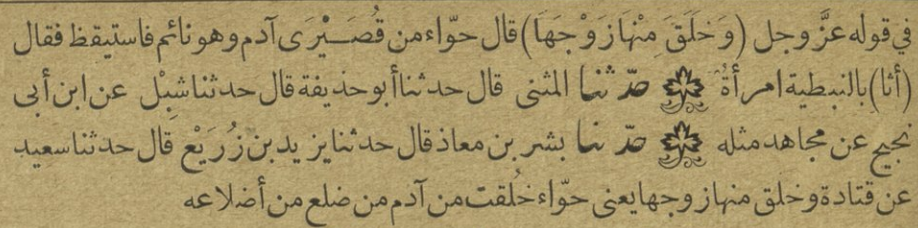 في قوله عزّ وجل (وَخلَقَ مِنْهَا زَوْجَهَا) قال حوّاء من قُصَيْرَى آدم وهو نائم فاستيقظ فقال
(أثا) بالنبطية امرأةٌ حدّثنا المثنى قال حدثنا أبو حذيفة قال حدثنا شِبْل عن ابن أبى
نجيح عن مجاهد مثله حدّثنا بشر بن معاذ قال حدثنا يزيد بن زُرَيْع قال حدثنا سعيد
عن قتادة وخلق منها زوجها يعنى حوّاء خُلقت من آدم من ضلع من أضلاعه